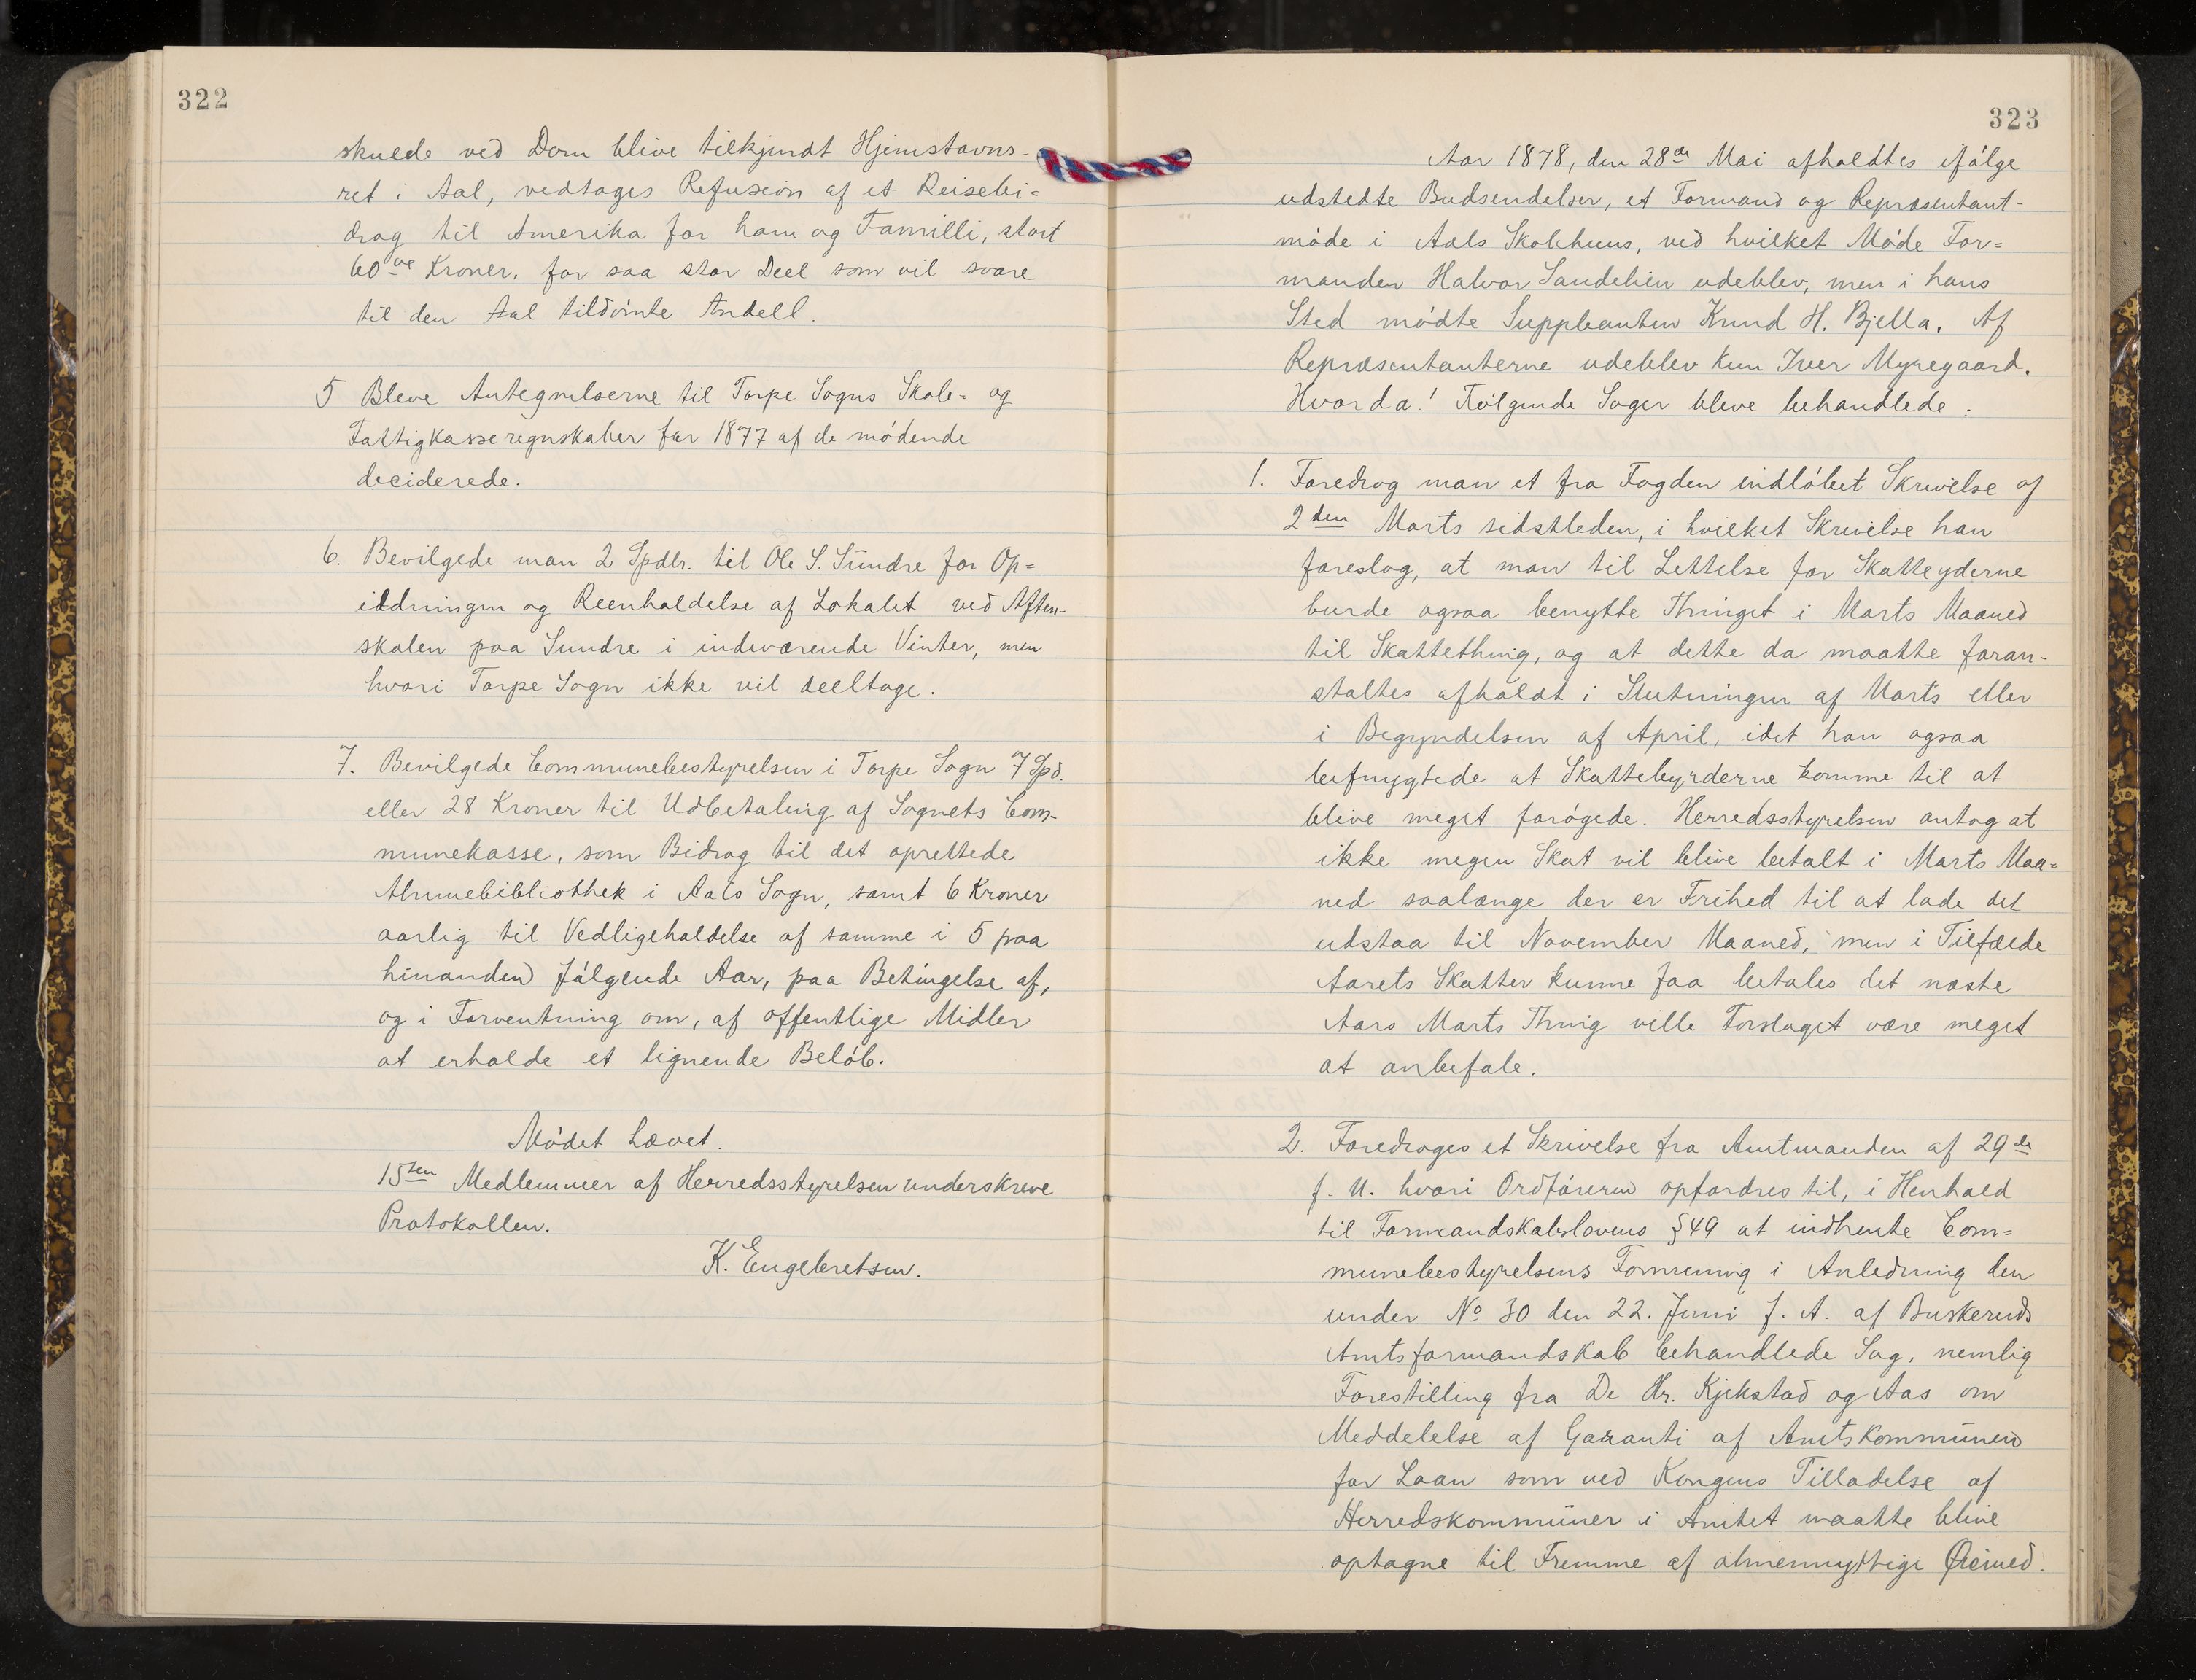 322
skulde ved Dom blive tilkjendt Hjemstavns-
ret i Aal, vedtages Refusion af et Reisebi=
drag til Amerika for ham og Familli, stort
60ve Kroner, for saa stor Deel som vil svare
til den Aal tildømte Andell.
5 Bleve Antegnelserne til Torpe Sogns Skole- og
Fattigkasseregnskaber for 1877 af de mødende
deciderede.
6. Bevilgede man 2 Spdlr. til Ole S. Sundre for Op=
ildningen og Reenholdelse af Lokalet ved Aften-
skolen paa Sundre i indeværende Vinter, men
hvori Torpe Sogn ikke vil deeltage.
7. Bevilgede Communebestyrelsen i Torpe Sogn 7 Spd.
eller 28 Kroner til Udbetaling af Sognets Com-
munekasse, som Bidrag til det oprettede
Almuebibliothek i Aals Sogn, samt 6 Kroner
aarlig til Vedligeholdelse af samme i 5 paa
hinanden følgende Aar, paa Betingelse af,
og i Forventning om, af offentlige Midler
at erholde et lignende Beløb.
Mødet hævet.
15ten Medlemmer af Herredsstyrelsen underskreve
Protokollen.
K. Engebretsen.
323
Aar 1878, den 28de Mai afholdtes ifølge
udstedte Budsendelser, et Formand og Repræsentant-
møde i Aals Skolehuus, ved hvilket Møde For=
manden Halvor Sandelien udeblev, men i hans
Sted mødte Suppleanten Knud H. Bjella. Af
Repræsentanterne udeblev kun Iver Myregaard.
Hvorda! Følgende Sager bleve behandlede:
1. Foredrog man et fra Fogden indløbet Skrivelse af
2den Marts sidstleden, i hvilket Skrivelse han
foreslog, at man til Lettelse for Skatteyderne
burde ogsaa benytte Thinget i Marts Maaned
til Skattething, og at dette da maatte foran-
staltes afholdt i Slutningen af Marts eller
i Begyndelsen af April, idet han ogsaa
befrygtede at Skattebyrderne komme til at
blive meget forøgede. Herredsstyrelsen antog at
ikke megen Skat vil blive betalt i Marts Maa=
ned saalænge der er Frihed til at lade det
udstaa til November Maaned, men i Tilfælde
Aarets Skatter kunne faa betales det næste
Aars Marts Thing ville Forslaget være meget
at anbefale.
2. Foredroges et Skrivelse fra Amtmanden af 29de
f. M. hvori Ordføreren opfordres til, i Henhold
til Formandskabslovens §49 at indhente Com=
munebestyrelsens Formening i Anledning den
under No 30 den 22. Juni f. A. af Buskeruds
Amtsformandskab behandlede Sag, nemlig
Forestilling fra De Hr. Kjekstad og Aas om
Meddelelse af Garanti af Amtskommunen
for Laan som ved Kongens Tilladelse af
Herredskommuner i Amtet maatte blive
optagne til Fremme af almennyttige Øiemed.